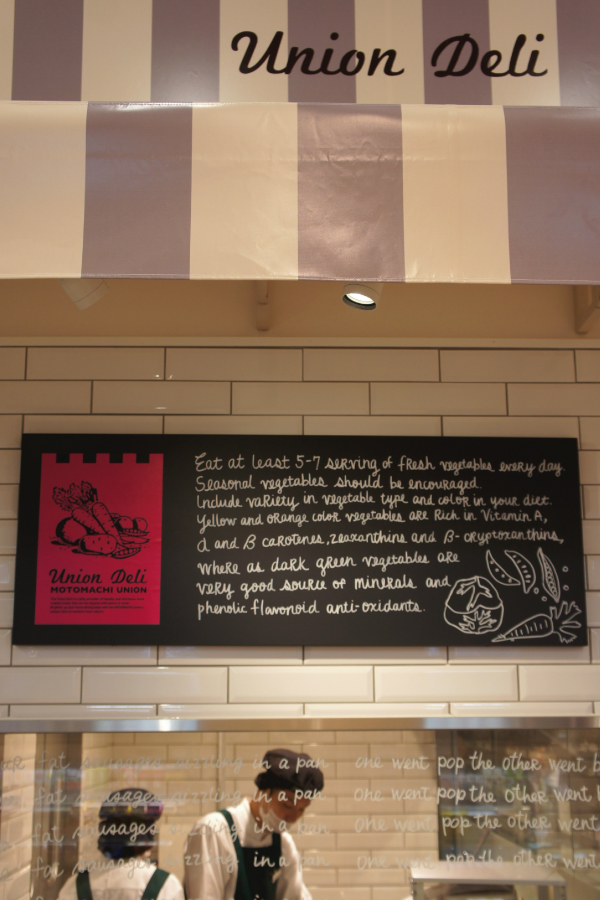 Union Deli
Eat at least 5-7 serving of fresh vegetables every day.
Seasonal vegetables should be encouraged.
Include variety in vegetable type and color in your diet.
Yellow and orange color vegetables are Rich in Vitamin A,
α and β carotenes, zeaxanthins and β- cryptoxanthins,
Where as dark green vegetables are
very good source of minerals and
phenolic flavonoid anti-oxidants.
Union Deli
MOTOMACHI UNION
fat sausages sizzling in a pan one went pop the other went
fat sausages sizzling in a pan one went pop the other went
fat sausages sizzling in a pan one went pop the other went
fat sausages sizzling in a pan one went pop the other went